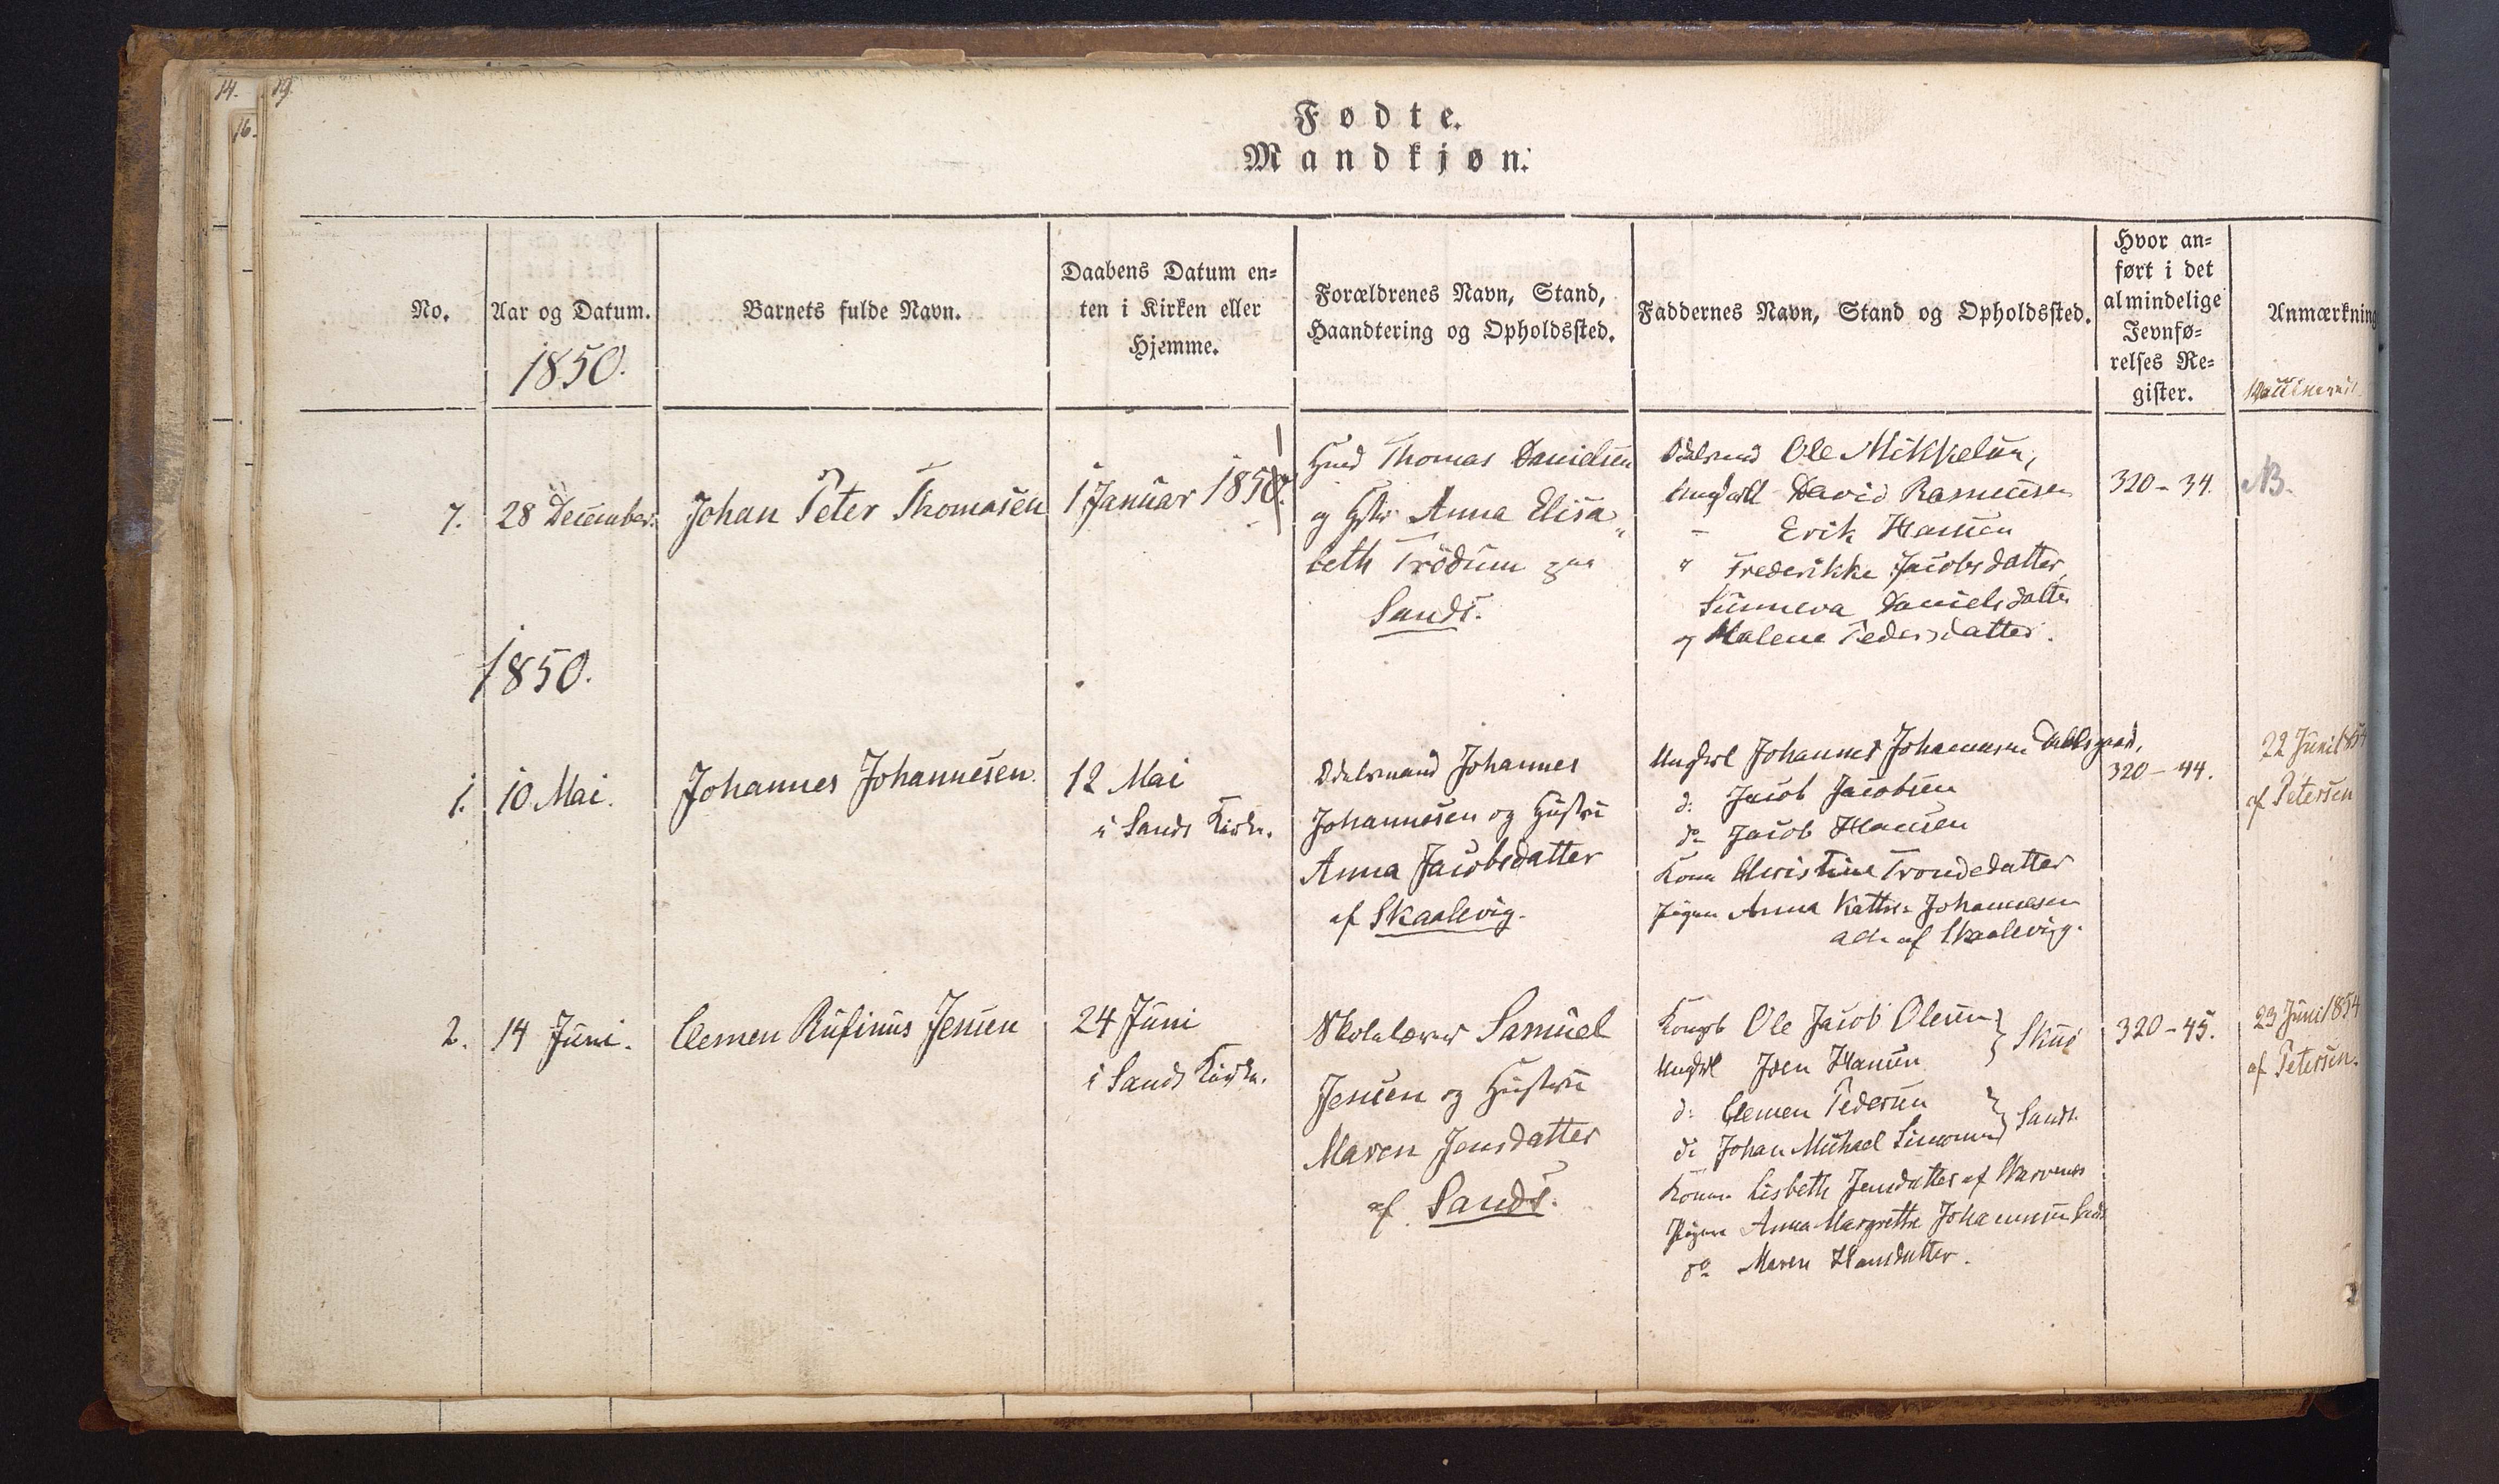 14.
19.
16.
Fødte.
Mandkjøn.
No.
Aar og Datum.
1850.
Barnets fulde Navn.
Daabens Datum en-
ten i Kirken eller
Hjemme.
Forældrenes Navn, Stand,
Haandtering og Opholdssted.
Faddernes Navn, Stand og Opholdssted.
Hvor an-
ført i det
almindelige
Jevnfø-
relses Re-
gister.
Anmærkning
7.
28 December.
Johan Peter Thomasen
1 Januar 1850.
Thomas Danielsen
og Anna Elisa
beth Trödum paa
Sand.
Ole Mikkelsen,
David Rasmussen
- Erik Hansen
" Frederikke Jacobsdatter
Sunneva Danielsdatter
og Malene Pedersdatter.
320-34.
NB.
1850.
1.
10 Mai.
Johannes Johannesen.
12 Mai
i Sands Kirke.
Odelsmand Johannes
Johannesen og Hustru
Anna Jacobsdatter
af Skaalevig.
Ungkarl Johannes Johannesen Dalsgaard,
d: Jacob Jacobsen
do Jacob Hansen
Kone Christine Trondedatter
Pigen Anna Kathr. Johannesen
alle af Skaalevig.
320-44.
22 Juni 1854
af Petersen
2.
14 Juni.
Clemen Rufinus Jensen
24 Juni
i Sands Kirke.
Skolelærer Samuel
Jensen og Hustru
Maren Jensdatter
af Sand.
Ole Jacob Olesen
Ungkarl Joen Hansen
Skuö
d: Clemen Pedersen
d: Johan Michael Simonsen
Sand.
Konen Lisbeth Jensdatter af Skarvenes
Pigen Anna Margrethe Johannesen Sand
do Maren Hansdatter.
320-45.
23 Juni 1854
af Petersen.